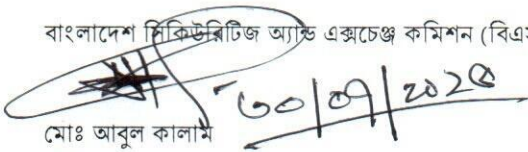 বাংলাদেশ সিকিউরিটিজ অ্যান্ড এক্সচেঞ্জ কমিশন (বিএস
৩০/০৭/২০২৫
মোঃ আবুল কালাম